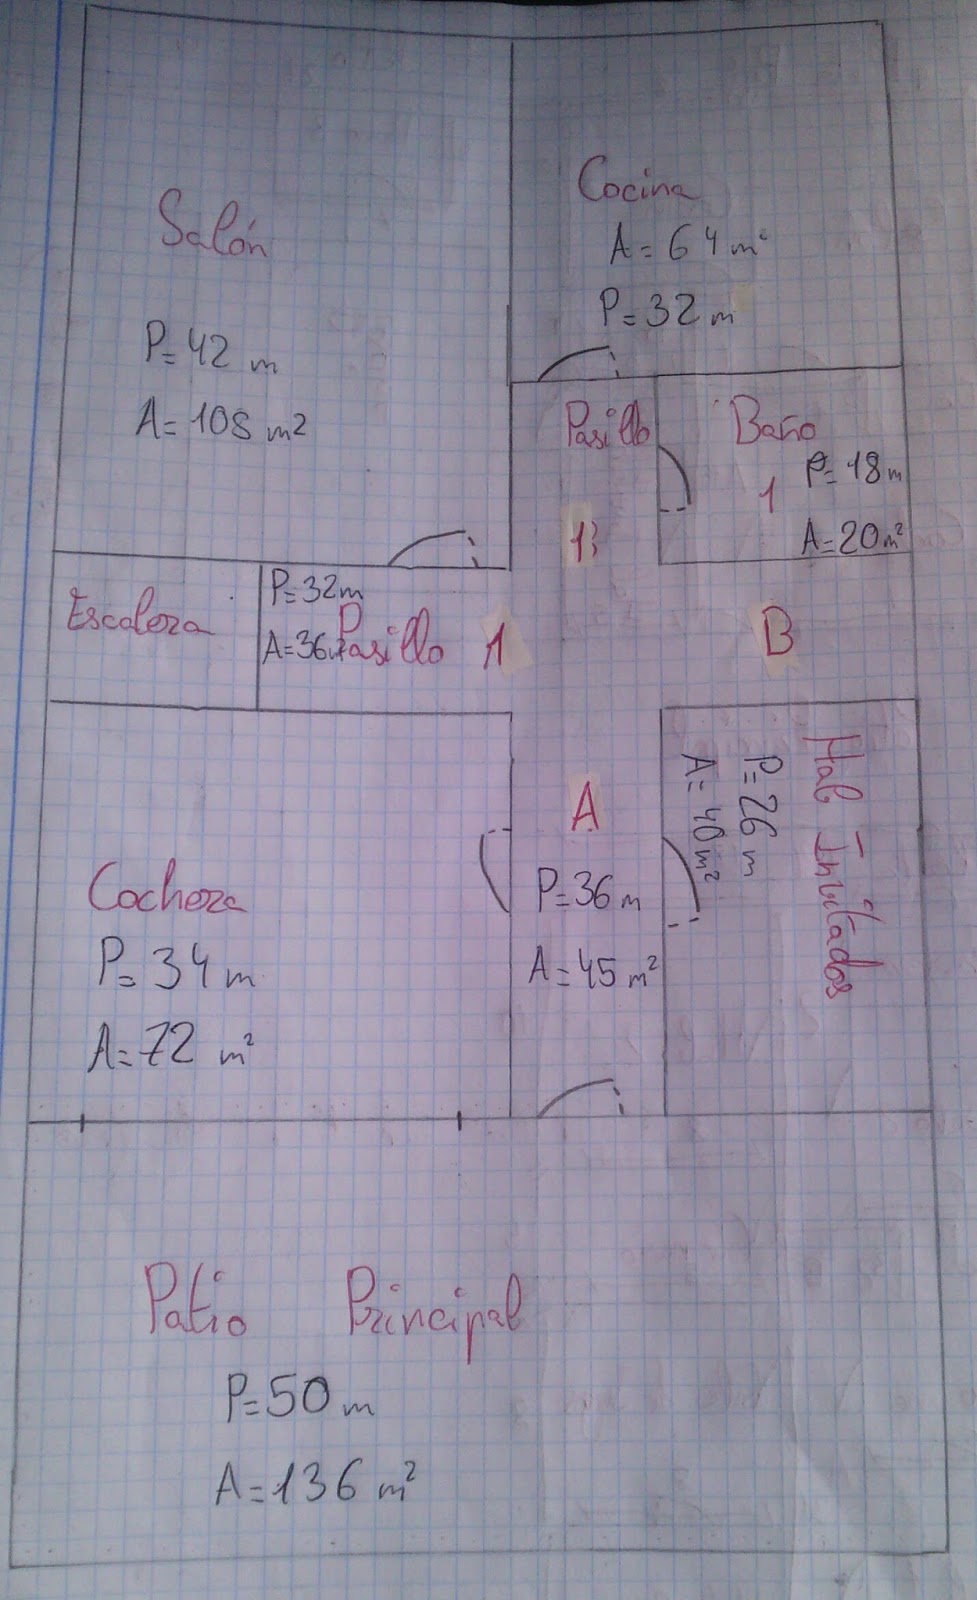 Salón
P=42 m
A=108 m²
Cocina
A=64 m²
P=32 m
Pasillo
13
Baño
1
P=18 m
A=20 m²
Escalera
P=32m
A=36
Pasillo 1
B
A
P=36 m
A=45 m²
Hab Invitados
P=26 m
A=40 m²
Cochera
P=34 m
A=72 m²
Patio Principal
P=50 m
A=136 m²